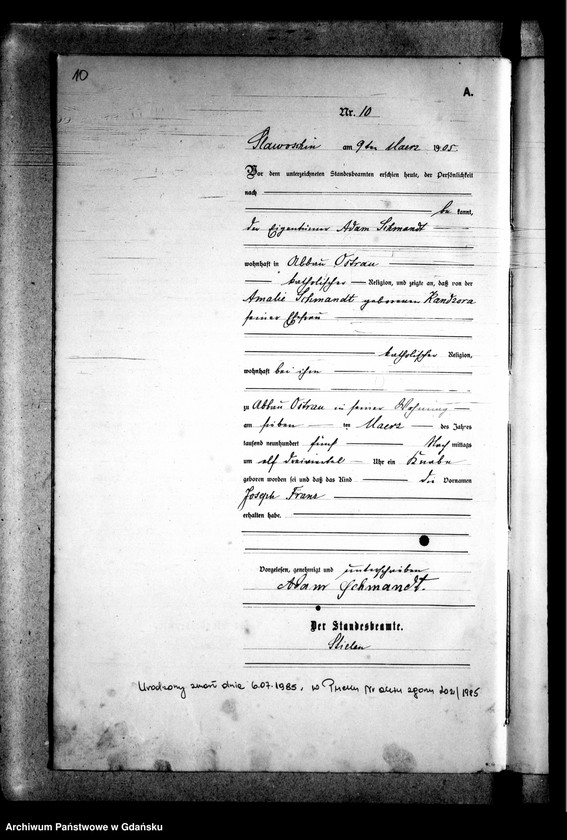 10
A.
Nr. 10
Slawoschin am 9ten Maerz 1905.
Vor dem unterzeichneten Standesbeamten erschien heute, der Persönlichkeit
nach
be kannt,
der Eigentümer Adam Schmandt
wohnhaft in Abbau Ostrau
katholischer Religion, und zeigte an, daß von der
Amalie Schmandt geborenen Kandzora
seiner Ehefrau
katholischer Religion,
wohnhaft bei ihm
zu Abbau Ostrau in seiner Wohnung
am sieben ten Maerz des Jahres
tausend neunhundert fünf Nach mittags
um elf dreiviertel Uhr ein Knabe
geboren worden sei und daß das Kind die Vornamen
Joseph Franz
erhalten habe.
Vorgelesen, genehmigt und unterschrieben
Adam Schmandt.
Der Standesbeamte.
Urodzony zmarł dnia 6.07.1985, w Nr aktu zgonu 202/1985
Archiwum Państwowe w Gdańsku